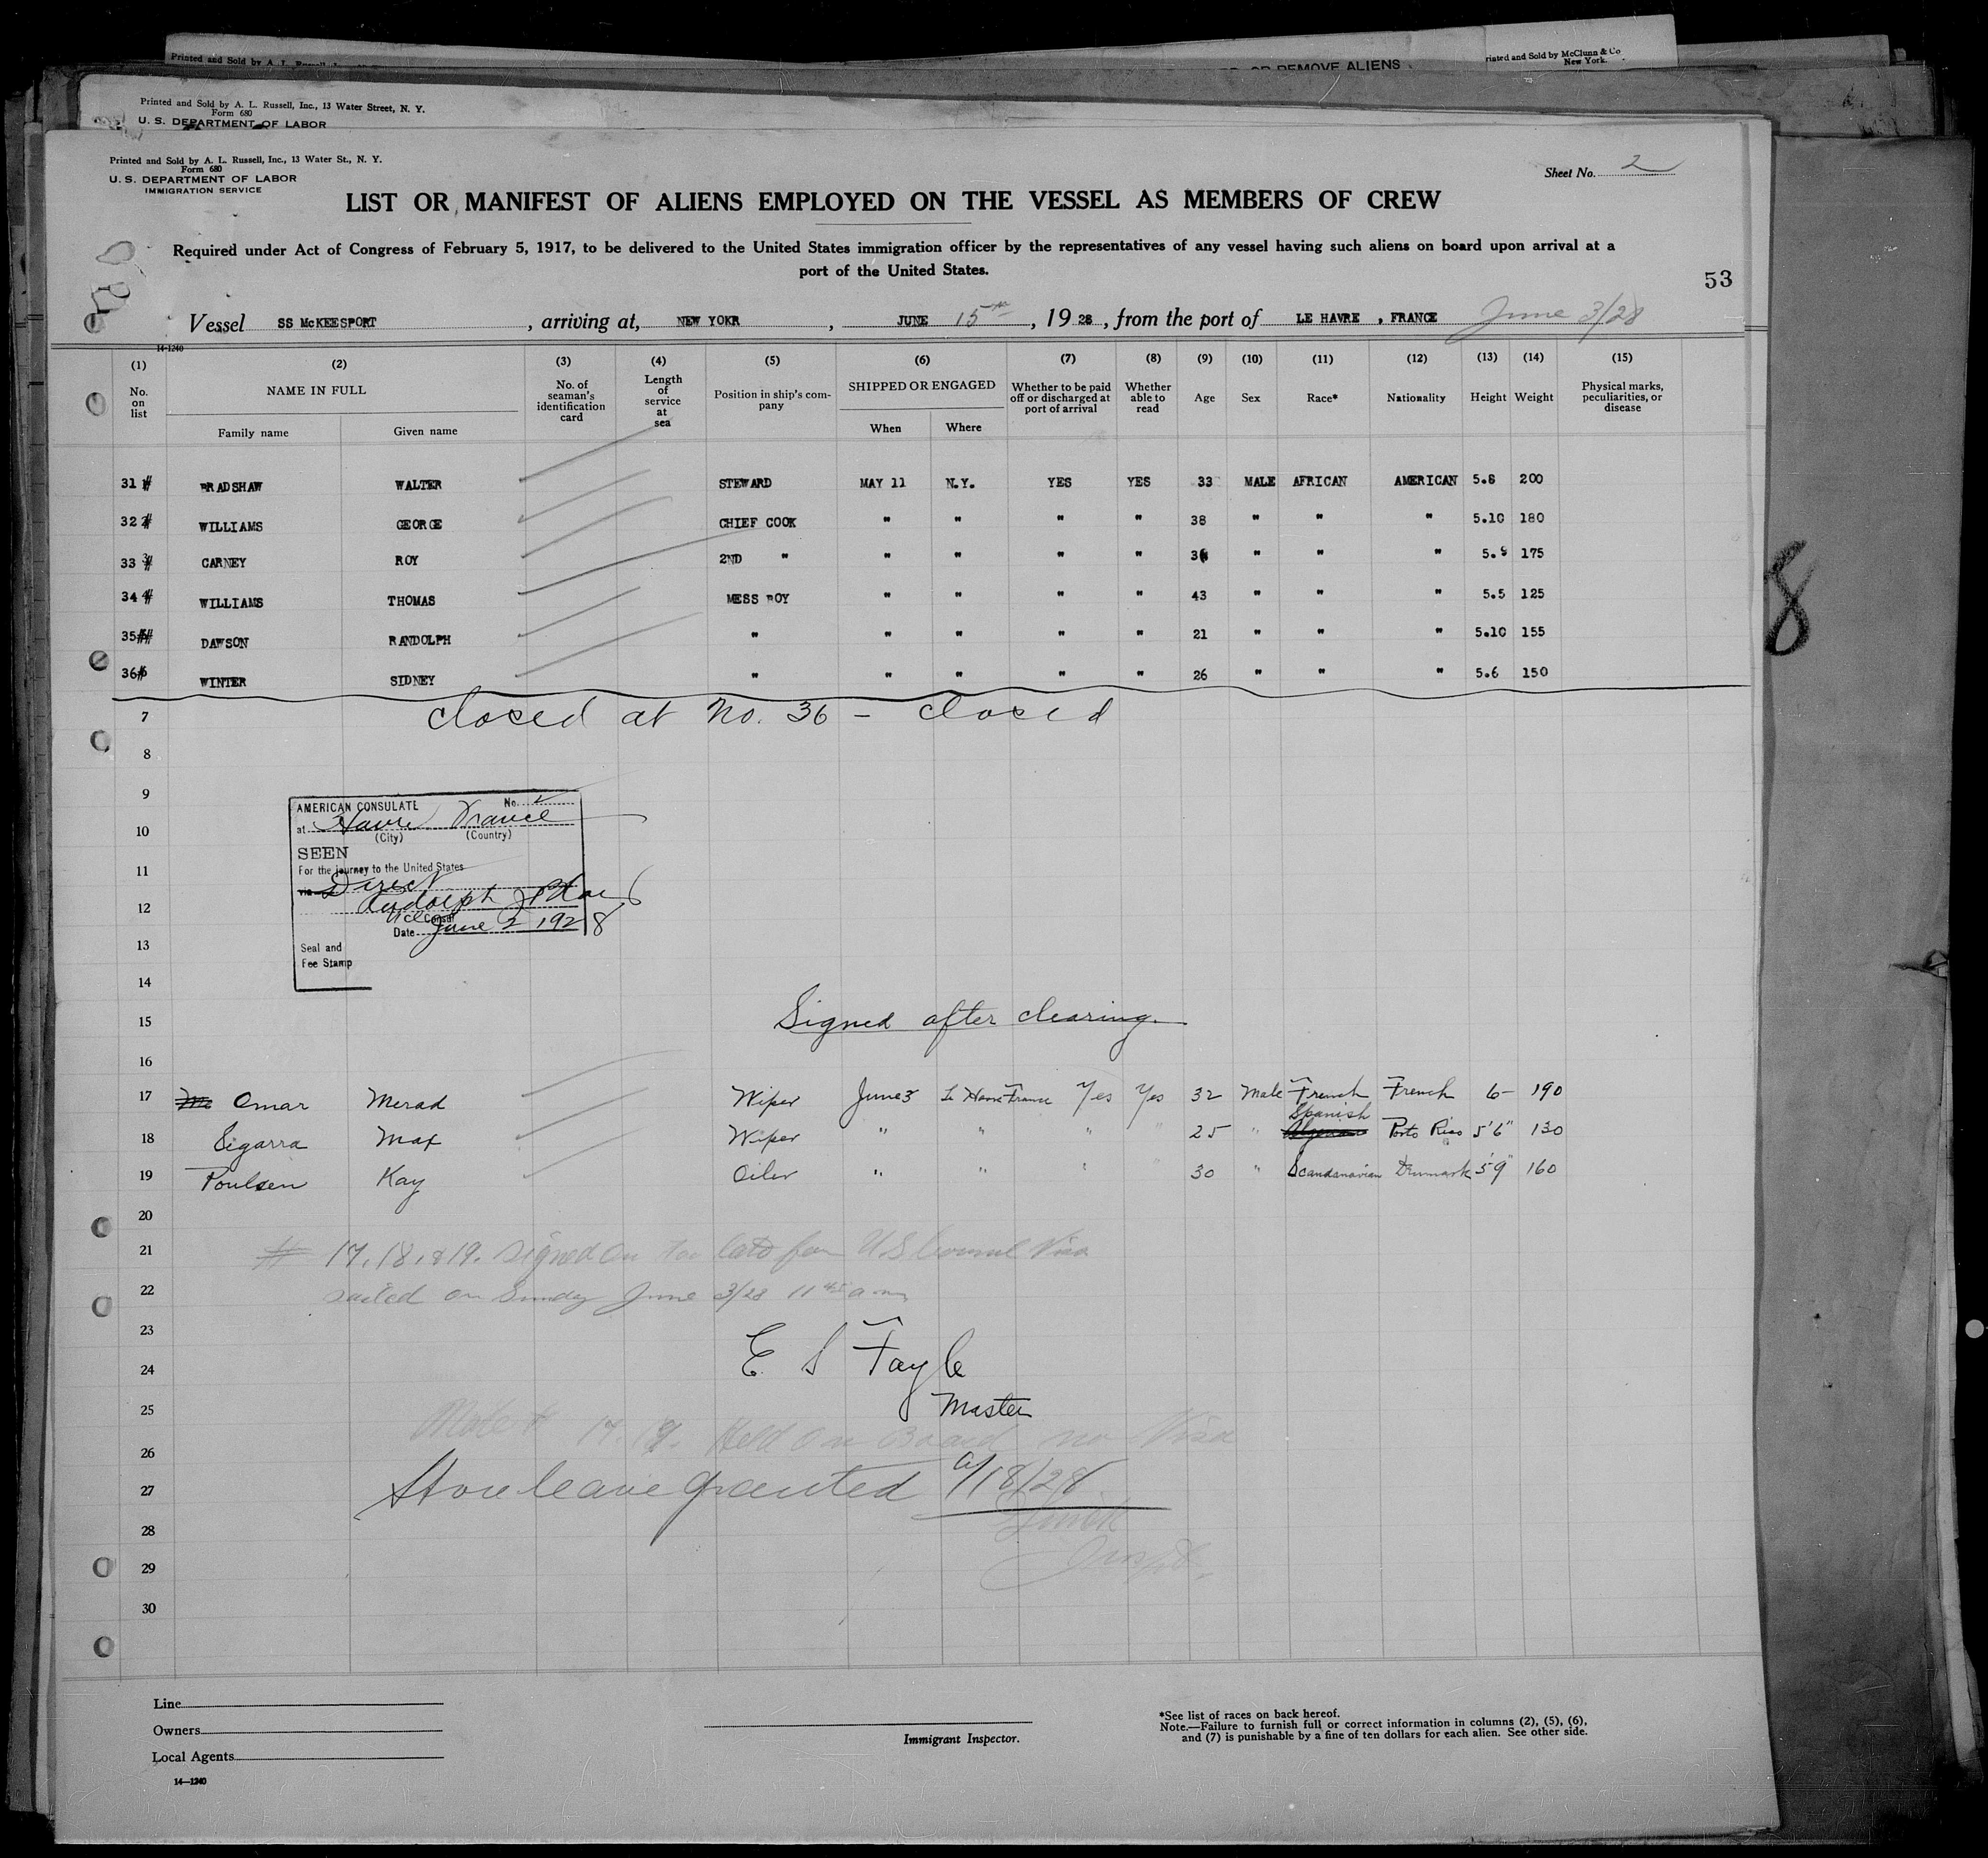 Printed and Sold by McClunn & Co
New York.
OR REMOVE ALIENS
Printed and Sold by A. L. Russell, Inc., 13 Water Street, N. Y.
Form 680
U. S. DEPARTMENT OF LABOR
Printed and Sold by A. L. Russell, Inc., 13 Water St., N. Y.
Form 680
U. S. DEPARTMENT OF LABOR
IMMIGRATION SERVICE
Sheet No. 2
LIST OR MANIFEST OF ALIENS EMPLOYED ON THE VESSEL AS MEMBERS OF CREW
Required under Act of Congress of February 5, 1917, to be delivered to the United States immigration officer by the representatives of any vessel having such aliens on board upon arrival at a
port of the United States.
53
Vessel SS McKEESPORT, arriving at, NEW YOKR, JUNE 15th, 1928, from the port of LE HAVRE, FRANCE June 3/28
14-1240
(1) (2) (3) (4) (5) (6) (7) (8) (9) (10) (11) (12) (13) (14) (15)
No. on list NAME IN FULL Family name Given name No. of seaman's identification card Length of service at sea Position in ship's company SHIPPED OR ENGAGED When Where Whether to be paid off or discharged at port of arrival Whether able to read Age Sex Race* Nationality Height Weight Physical marks, peculiarities, or disease
31 BRADSHAW WALTER STEWARD MAY 11 N.Y. YES YES 33 MALE AFRICAN AMERICAN 5.8 200
32 WILLIAMS GEORGE CHIEF COOK " " " " 38 " " " 5.10 180
33 CARNEY ROY 2ND " " " " " " " " 5.9 175
34 WILLIAMS THOMAS MESS BOY " " " " 43 " " " 5.5 125
35 DAWSON RANDOLPH " " " " " 21 " " " 5.10 155
36 WINTER SIDNEY " " " " " 26 " " " 5.6 150
7 closed at No. 36 - closed
8
9
AMERICAN CONSULATE No.
10 at Havre France
(City) (Country)
SEEN
11 For the journey to the United States
via Direct
12 Rudolph
Vice Consul
Date June 2 1928
13 Seal and
Fee Stamp
14
15 Signed after clearing
16
17 Omar Merad Wiper June 3 Le Havre France Yes Yes 32 Male French French 6- 190
Spanish
18 Sigarra Max Wiper " " " " 25 " Algerian Porto Rico 5'6" 130
19 Poulsen Kay Oiler " " " " 30 " Scandanavian Denmark 5'9" 160
20
21 # 17, 18, & 19. Signed on too late for US Consul Visa
22 sailed on Sunday June 3/28 11 45 a m
23
24 E S Fayle
25 Master
Note # 17. 19. Held on Board no Visa
26
27 Shore leave granted 6/18/28
28
29
30
8
Line
Owners
Local Agents
14—1240
Immigrant Inspector.
*See list of races on back hereof.
Note.—Failure to furnish full or correct information in columns (2), (5), (6),
and (7) is punishable by a fine of ten dollars for each alien. See other side.